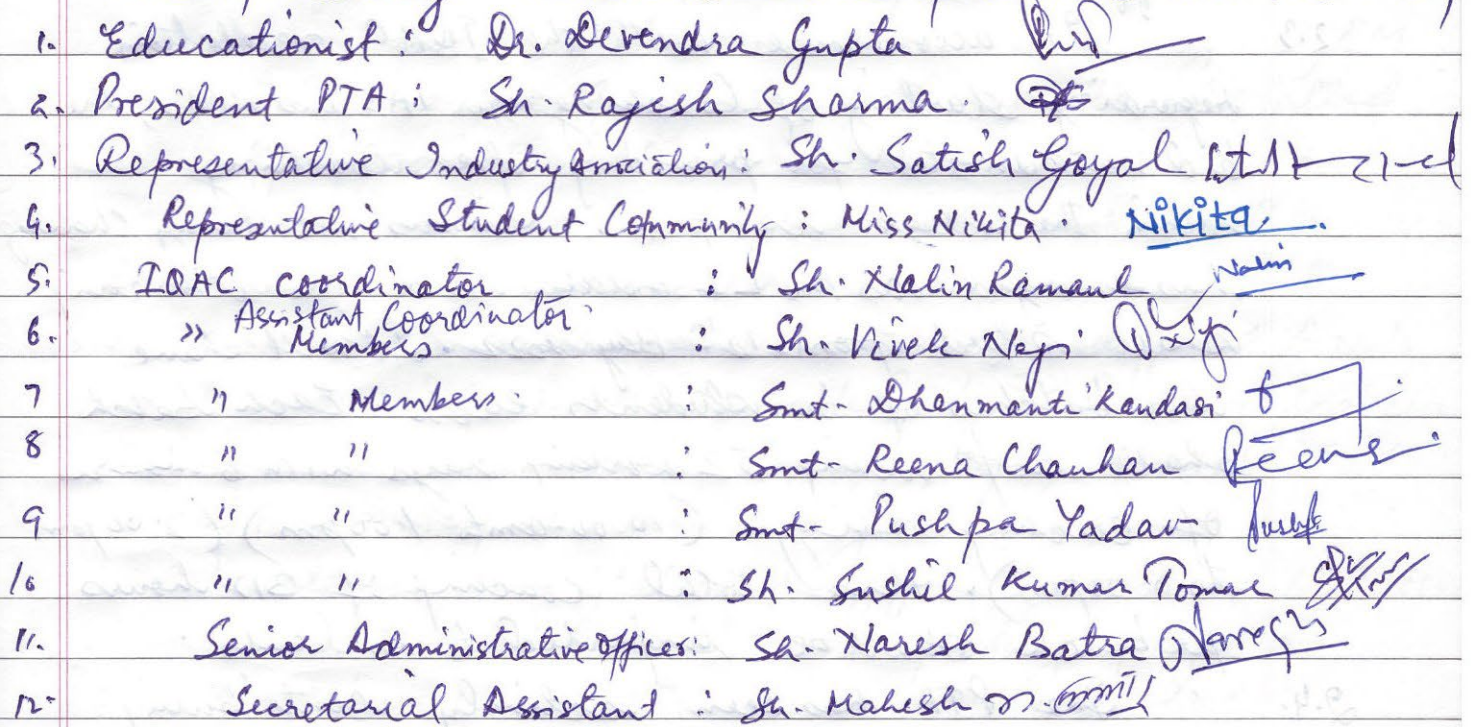 1. Educationist : Dr. Devendra Gupta
2. President PTA : Sh. Rajesh Sharma.
3. Representative Industry Association : Sh. Satish Goyal
4. Representative Student Community : Miss Nikita. Nikita
5. IQAC coordinator : Sh. Nalin Ramaul Nalin
6. " Assistant Coordinator Members : Sh. Vivek Negi
7 " Members : Smt- Dhanmanti Kandasi
8 " " : Smt- Reena Chauhan Reena
9 " " : Smt- Pushpa Yadav
10 " " : Sh. Sushil Kumar Tomar
11. Senior Administrative officer : Sh. Naresh Batra Naresh
12- Secretarial Assistant : Sh. Mahesh